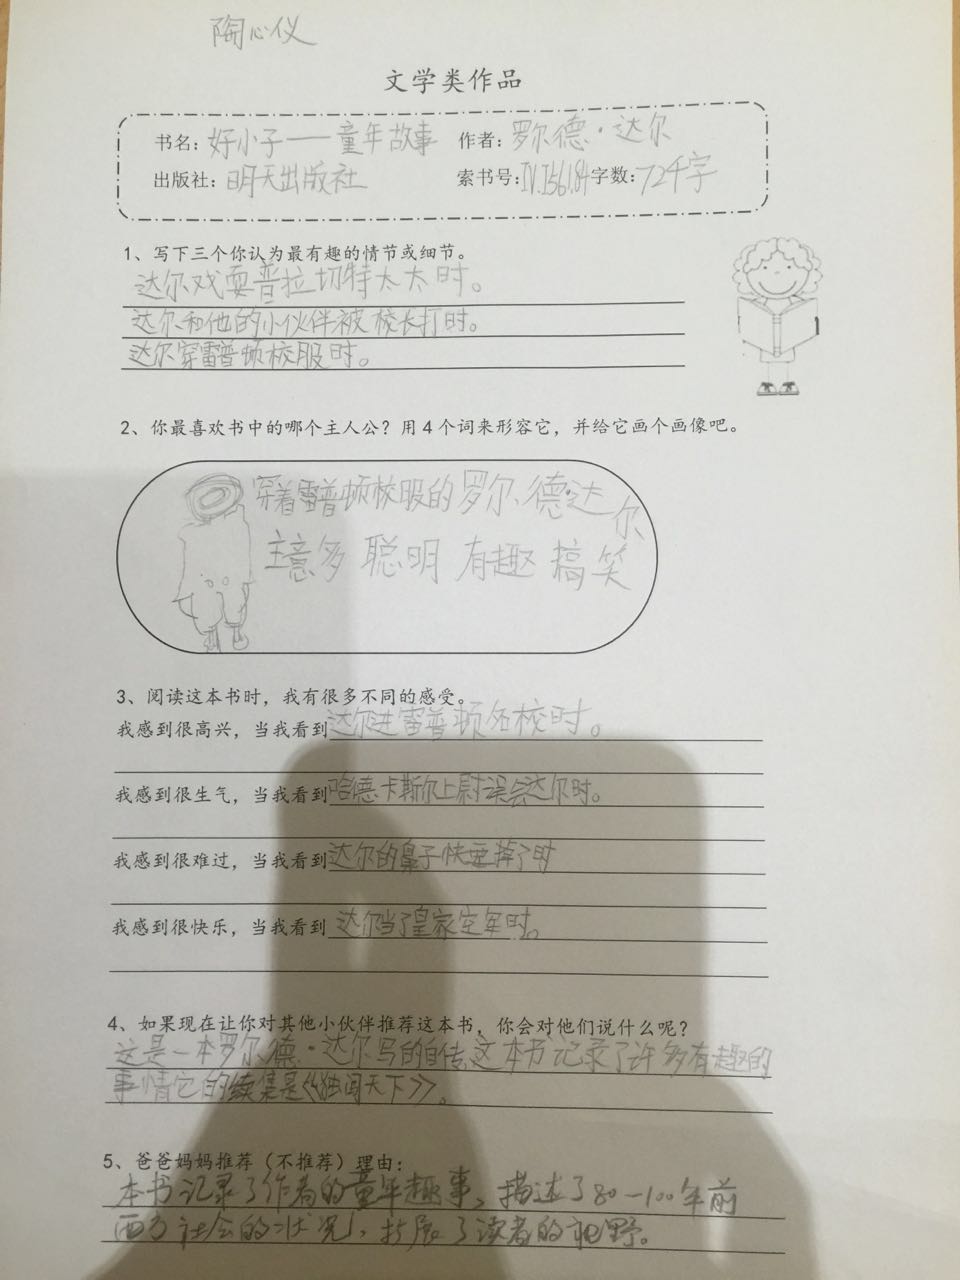 陶心仪
文学类作品
书名：好小子——童年故事 作者：罗尔德·达尔
出版社：明天出版社 索书号：IV.I561.84 字数：72千字
1、写下三个你认为最有趣的情节或细节。
达尔戏耍普拉切特太太时。
达尔和他的小伙伴被校长打时。
达尔穿雷普顿校服时。
2、你最喜欢书中的哪个主人公？用4个词来形容它，并给它画个画像吧。
穿着雷普顿校服的罗尔德·达尔
主意多 聪明 有趣 搞笑
3、阅读这本书时，我有很多不同的感受。
我感到很高兴，当我看到达尔进雷普顿名校时。
我感到很生气，当我看到哈德卡斯尔上尉误会达尔时。
我感到很难过，当我看到达尔的鼻子快要掉了时
我感到很快乐，当我看到 达尔当了皇家空军时。
4、如果现在让你对其他小伙伴推荐这本书，你会对他们说什么呢？
这是一本罗尔德·达尔写的自传，这本书记录了许多有趣的
事情它的续集是《独闯天下》。
5、爸爸妈妈推荐（不推荐）理由：
本书记录了作者的童年趣事，描述了80—100年前
西方社会的状况，扩展了读者的视野。